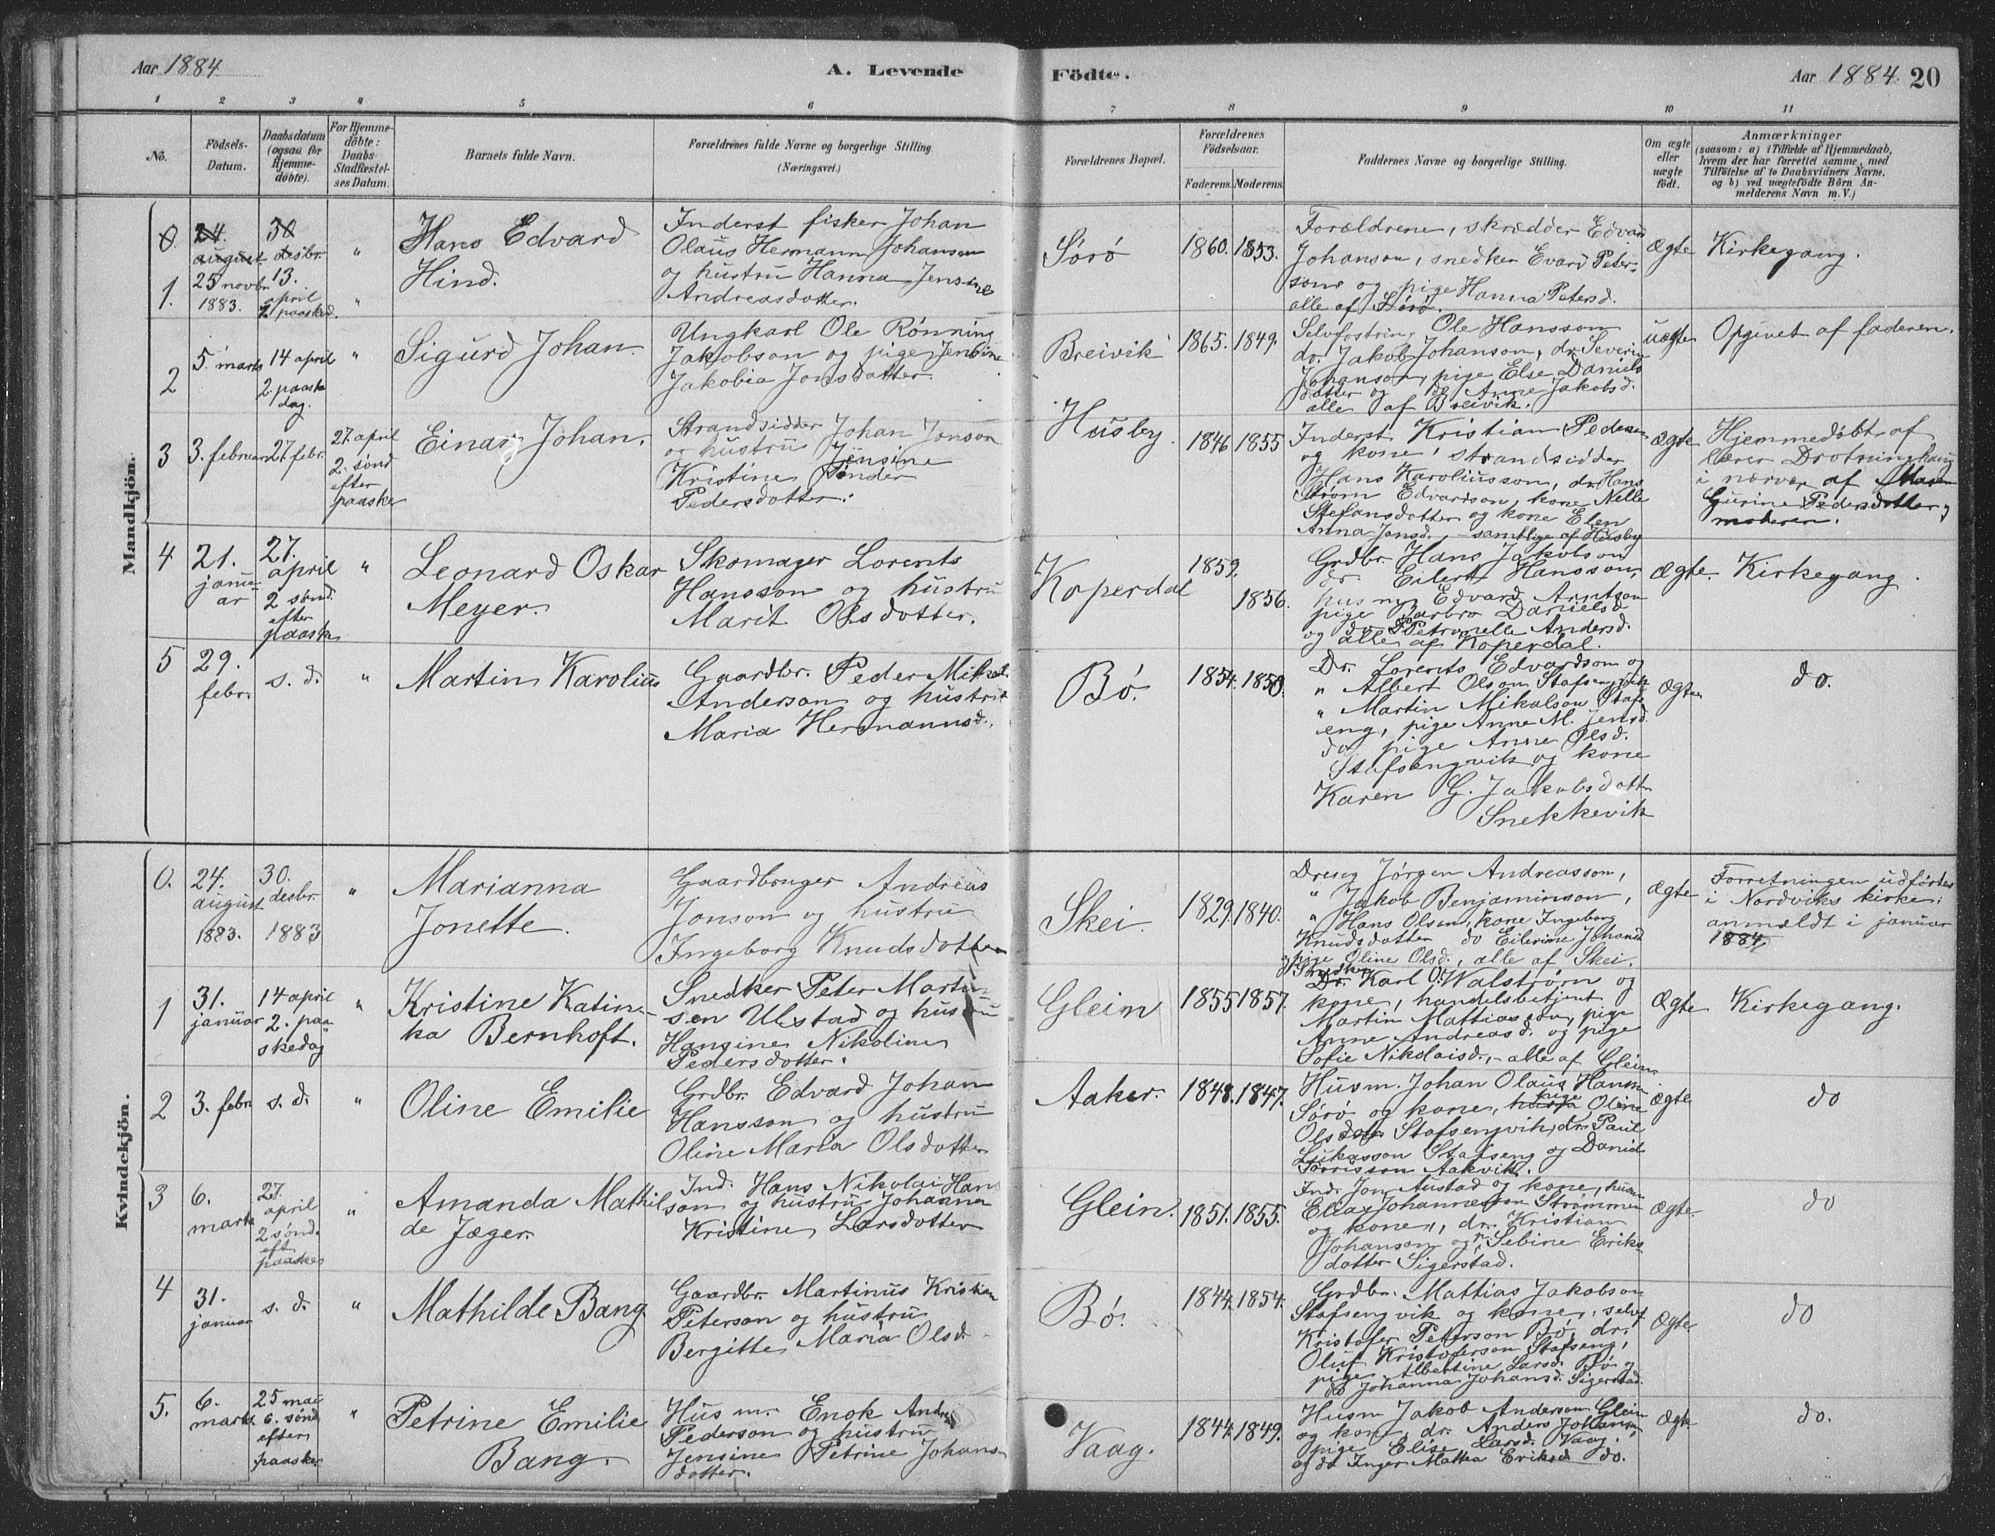 Aar 1884
A. Levende
Födte.
Aar 1884. 20
1 2 3 4 5 6 7 8 9 10 11
No.
Födsels-
Datum.
Daabsdatum
(ogsaa för
Hjemme-
döbte).
For Hjemme-
döbte:
Daabs-
Stadfæstel-
ses Datum.
Barnets fulde Navn.
Forældrenes fulde Navne og borgerlige Stilling.
(Næringsvei.)
Forældrenes Bopæl.
Forældrenes
Födselsaar.
Faderens. Moderens.
Faddernes Navne og borgerlige Stilling.
Om ægte
eller
uægte
født.
Anmærkninger
(saasom: a) i Tilfælde af Hjemmedaab,
hvem der har forrettet samme, med
Tilföielse af to Daabsvidners Navne,
og b) ved uægtefödte Börn An-
melderens Navn m. V.)
Mandkjön.
0. 24. august 30 desbr. "
1. 25 novbr. 1883. 13. april 2 paasked. "
Hans Edvard
Hind.
Inderst fisker Johan
Olaus Hermann Johanson
og hustru Hanna Jensine
Andreasdotter.
Sørø
1860. 1853.
Forældrene, skrædder Edvard
Johanson, snedker Evard Peter-
sons og pige Hanna Petersd.
alle af Sørø.
Ægte
Kirkegang.
2
5. marts
14 april
2. paaske
dag.
"
Sigurd Johan.
Ungkarl Ole Rønning
Jakobson og pige Jensine
Jakobia Jonsdotter.
Breivik
1865. 1849.
Ole Hansson
dr. Jakob Johanson, dr. Severin
Johanson, pige Else Daniels
dotter og do Anne Jakobsd.
alle af Breivik.
uægte
Opgivet af faderen.
3
3. februar
27. febr.
27. april
2. sønd
efter
paaske
Einar Johan.
Strandsidder Johan Jonson
og hustru Jensine
Kristine
Pedersdotter.
Husby
1846 1855
Inderst Kristian Pedersen
og kone, strandsidder
Hans Karoliusson, dr. Hans
Strøm Edvardson, kone Nelle
Stefansdotter og kone Elen
Anna Jensd. - samtlige af Husby
Ægte
Hjemmedøbt af
lærer Drotninghaug
i nærvær af Maren
Gurine Pedersdotter og
moderen.
4
21.
janu-
ar
27.
april
2 sønd.
efter
paaske
"
Leonard Oskar
Meyer.
Skomager Lorents
Hansson og hustru
Marit Olsdotter.
Koperdal
1859. 1856.
Grdbr. Hans Jakobson
dr. Eilert Hansson,
husm. Edvard Arntson
pige Barbro Danielsd
og do Petronelle Andersd.
alle af Koperdal.
Ægte.
Kirkegang.
5
29.
febr.
s. d.
"
Martin Karolius
Gaardbr. Peder Mikal
Anderson og hustru
Maria Hermannsd.
Bø.
1854. 1850.
Dr. Lorents Edvardson og
" Albert Olson Stafsengvik
" Martin Mikalson Stafs-
eng, pige Anne M. Jensd.
do pige Anne Olsd.
Stafsengvik og kone
Karen G. Jakobsdotter
Snekkevik
Ægte
do.
Kvindekjön.
0.
24.
august
1883.
30.
desbr.
1883
"
Marianna
Jonette.
Gaardbruger Andreas
Jonson og hustru
Ingeborg Knudsdotter
Skei.
1829. 1840.
Dreng Jørgen Andreasson,
" Jakob Benjaminson,
" Hans Olsen, kone Ingeborg
Knudsdotter do Eilerine Johansd
og pige Oline Olsd., alle af Skei.
Ægte
Forretningen udførtes
i Nordviks kirke:
anmældt i januar
1884,
1
31.
januar
14 april
2. paa
skedag
"
Kristine Katin-
ka Bernhoft.
Snedker Peter Martin
sen Ulstad og hustru
Hansine Nikoline
Pedersdotter.
Glein
1855 1857.
Snedker
Dr. Karl O. Walstrøm og
kone, handelsbetjent
Martin Mattiasson, pige
Anne Andreasd. og pige
Sofie Nikolaisd., - alle af Glein.
Ægte
Kirkegang.
2
3. febr
s. d.
"
Oline Emilie
Grdbr. Edvard Johan
Hansson og hustru
Oline Maria Olsdotter
Aaker.
1848. 1847.
Husm. Johan Olaus Hansen
Sørø og kone, pige Oline
Olsdott Stafsengvik, dr. Paul
Lukasson Stafseng og Daniel
Aakvik.
Ægte
do
3
6.
marts
27.
april
2 sønd.
eft.
paaske
"
Amanda Mathil
de Jæger.
Ind. Hans Nikolai Han
son og hustru Johanna
Kristine Larsdotter
Glein.
1851. 1855.
Ind. Jon Austad og kone, husm
Elias Johannesson Strømmen
og kone, dr. Kristian
Johanson og Sebine Eriks
dotter Sigerstad.
Ægte.
do
4
31.
januar
s. d.
"
Mathilde Bang
Gaardbr. Martinus Kristian
Peterson og hustru
Bergitte Maria Olsd.
Bø.
1844. 1854.
Grdbr. Mattias Jakobson
Stafsengvik og kone, selvf
Kristofer Peterson Bø, dr.
Oluf Kristoferson Stafseng,
pige Albertine Larsd. Bø og
do Johanna Johansd. Sigerstad.
Ægte
do
5.
6.
marts
25 mai
6. sønd
efter
paaske
"
Petrine Emilie
Bang.
Husm. Enok Andreas
Pederson og hustru
Jensine Petrine Johans
dotter.
Vaag.
1844. 1849.
Husm Jakob Anderson Glein
og kone, dr. Anders Johanson
pige Elise Larsd. Vaag.
og do Inger Mattea Eriksd do.
Ægte
do.